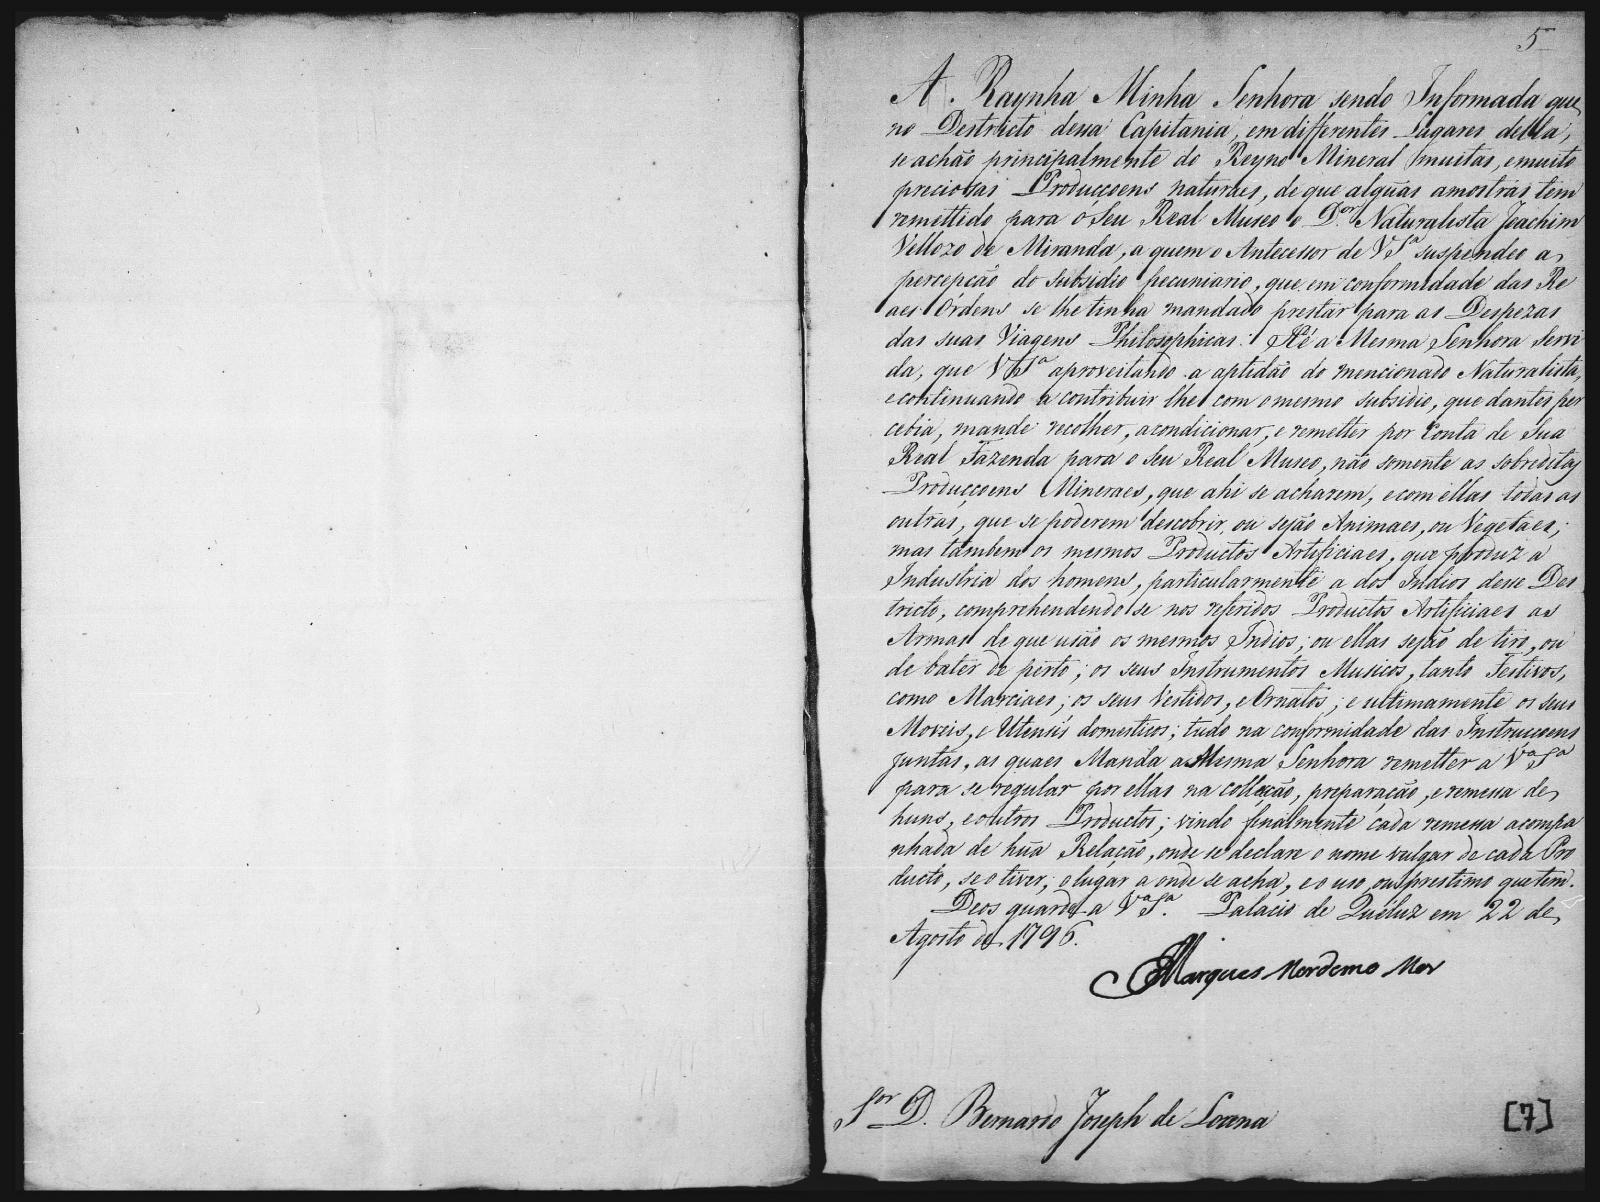 5
A Raynha Minha Senhora sendo Informada que
no Destricto dessa Capitania, em differentes Lugares della,
se achão principalmente do Reyno Mineral muitas, e muito
preciosas Producçoens naturaes, de que algũas amostras tem
remettido para o Seu Real Museo o D.or Naturalista Joachim
Vellozo de Miranda, a quem o Antecessor de V S.a suspendeo a
percepção do subsidio pecuniario, que em conformidade das Re
aes Órdens se lhe tinha mandado prestar para as Despezas
das suas Viagens Philosophicas: Hé a Mesma Senhora Servi
da, que V S.a aproveitando a aptidão do mencionado Naturalista,
e continuando a contribuir lhe com o mesmo subsidio, que dantes per
cebia, mande recolher, acondicionar, e remetter por Conta de Sua
Real Fazenda para o Seu Real Museo, não somente as sobreditas
Producçoens Mineraes, que ahi se acharem, e com ellas todas as
outras, que se poderem descobrir, ou sejão Animaes, ou Vegetaes;
mas tambem os mesmos Productos Artificiaes, que produz a
Industria dos homens, particularmente a dos Indios desse Des
tricto, comprehendendo se nos referidos Productos Artificiaes as
Armas de que usão os mesmos Indios, ou ellas sejão de tiro, ou
de bater de perto; os seus Instrumentos Musicos, tanto Festivos,
como Marciaes; os seus Vestidos, e Ornatos; e ultimamente os seus
Moveis, e Utensis domesticos; tudo na conformidade das Instrucçoens
juntas, as quaes Manda a Mesma Senhora remetter a V.a S.a
para se regular por ellas na collecção, preparação, e remessa de
huns, e outros Productos; vindo finalmente cada remessa acompa
nhada de hũa Relação, onde se declare o nome vulgar de cada Pro
ducto, se o tiver, o lugar a onde se acha, e o uso, ou prestimo que tem.
Deos guarde a V.a S.a Palacio de Quéluz em 22 de
Agosto de 1796.
Marques Mordomo Mor
S.or D. Bernardo Joseph de Lorena
[7]